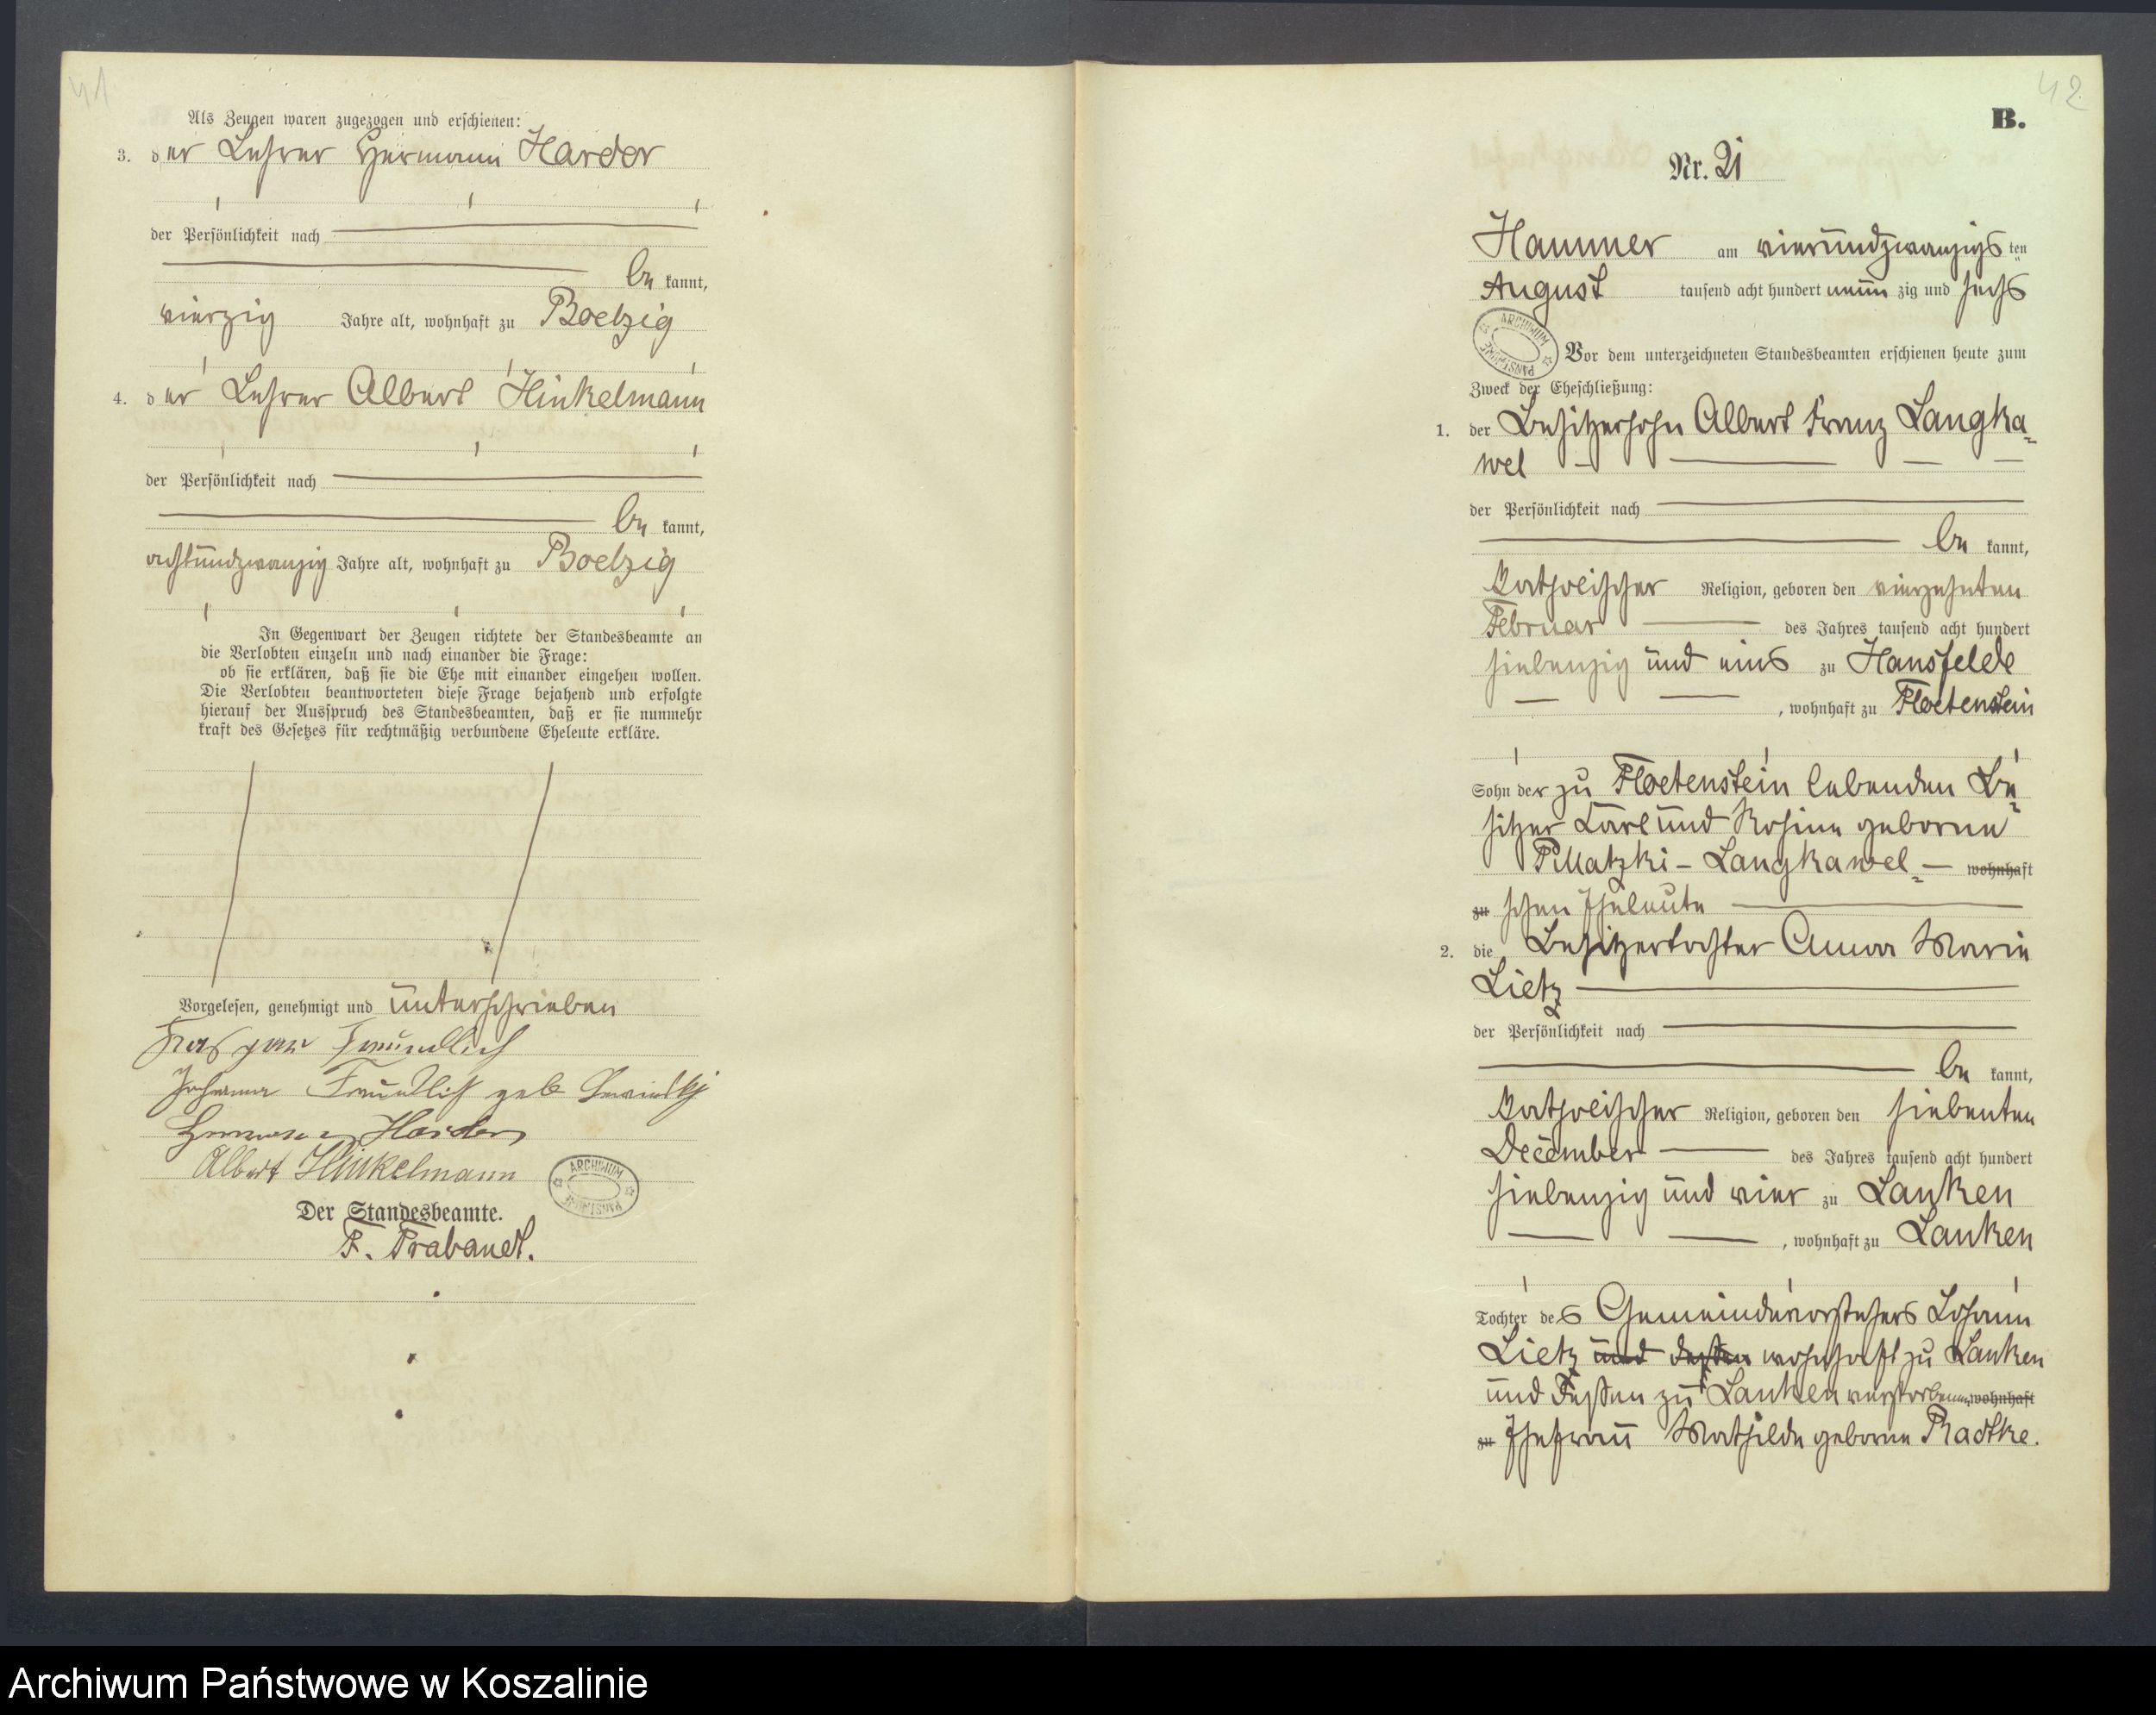 41
Als Zeugen waren zugezogen und erschienen:
3. der Lehrer Hermann Harder
der Persönlichkeit nach
be kannt,
vierzig Jahre alt, wohnhaft zu Boelzig
4. der Lehrer Albert Hinkelmann
der Persönlichkeit nach
be kannt,
achtundzwanzig Jahre alt, wohnhaft zu Boelzig
In Gegenwart der Zeugen richtete der Standesbeamte an
die Verlobten einzeln und nach einander die Frage:
ob sie erklären, daß sie die Ehe mit einander eingehen wollen.
Die Verlobten beantworteten diese Frage bejahend und erfolgte
hierauf der Ausspruch des Standesbeamten, daß er sie nunmehr
kraft des Gesetzes für rechtmäßig verbundene Eheleute erkläre.
Vorgelesen, genehmigt und unterschrieben
Freundlich
Johanna Freundlich geb
Hermann Harder
Albert Hinkelmann
ARCHIWUM PAŃSTWOWE
Der Standesbeamte.
F. Prabanet.
42
B.
Nr. 21
Hammer am vierundzwanzigs ten
August tausend acht hundert neun zig und sechs
ARCHIWUM PAŃSTWOWE
Vor dem unterzeichneten Standesbeamten erschienen heute zum
Zweck der Eheschließung:
1. der Besitzersohn Albert Franz Langka-
wel
der Persönlichkeit nach
be kannt,
katholischer Religion, geboren den vierzehnten
Februar des Jahres tausend acht hundert
siebenzig und eins zu Hansfelde
, wohnhaft zu Floetenstein
Sohn der zu Floetenstein lebenden Be-
sitzer Carl und Rosine geborne
Pillatzki - Langkawel- wohnhaft
zu schen Eheleute
2. die Besitzertochter Anna Marie
Lietz
der Persönlichkeit nach
be kannt,
katholischer Religion, geboren den siebenten
December des Jahres tausend acht hundert
siebenzig und vier zu Lanken
, wohnhaft zu Lanken
Tochter des Gemeindevorstehers Johann
Lietz und dessen wohnhaft zu Lanken
und dessen zu Lanken verstorbenen wohnhaft
zu Ehefrau Mathilde geborne Radtke.
Archiwum Państwowe w Koszalinie